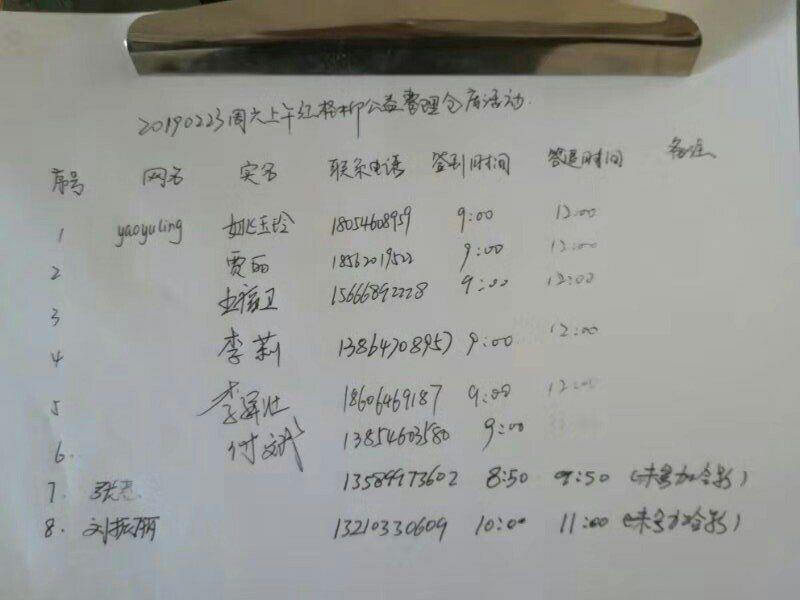 20190223周六上午红柽柳公益整理仓库活动
序号 网名 实名 联系电话 签到时间 签退时间 备注
1 yaoyuling 姚玉玲 18054608959 9:00 12:00
2 贾丽 18562019522 9:00 12:00
3 15666892228 9:00 12:00
4 李莉 13864708957 9:00 12:00
5 李军壮 18606469187 9:00 12:00
6. 付文武 13854603580 9:00
7. 张 13589973602 8:50 9:50 (未参加合影)
8. 刘振丽 13210330609 10:00 11:00 (未参加合影)